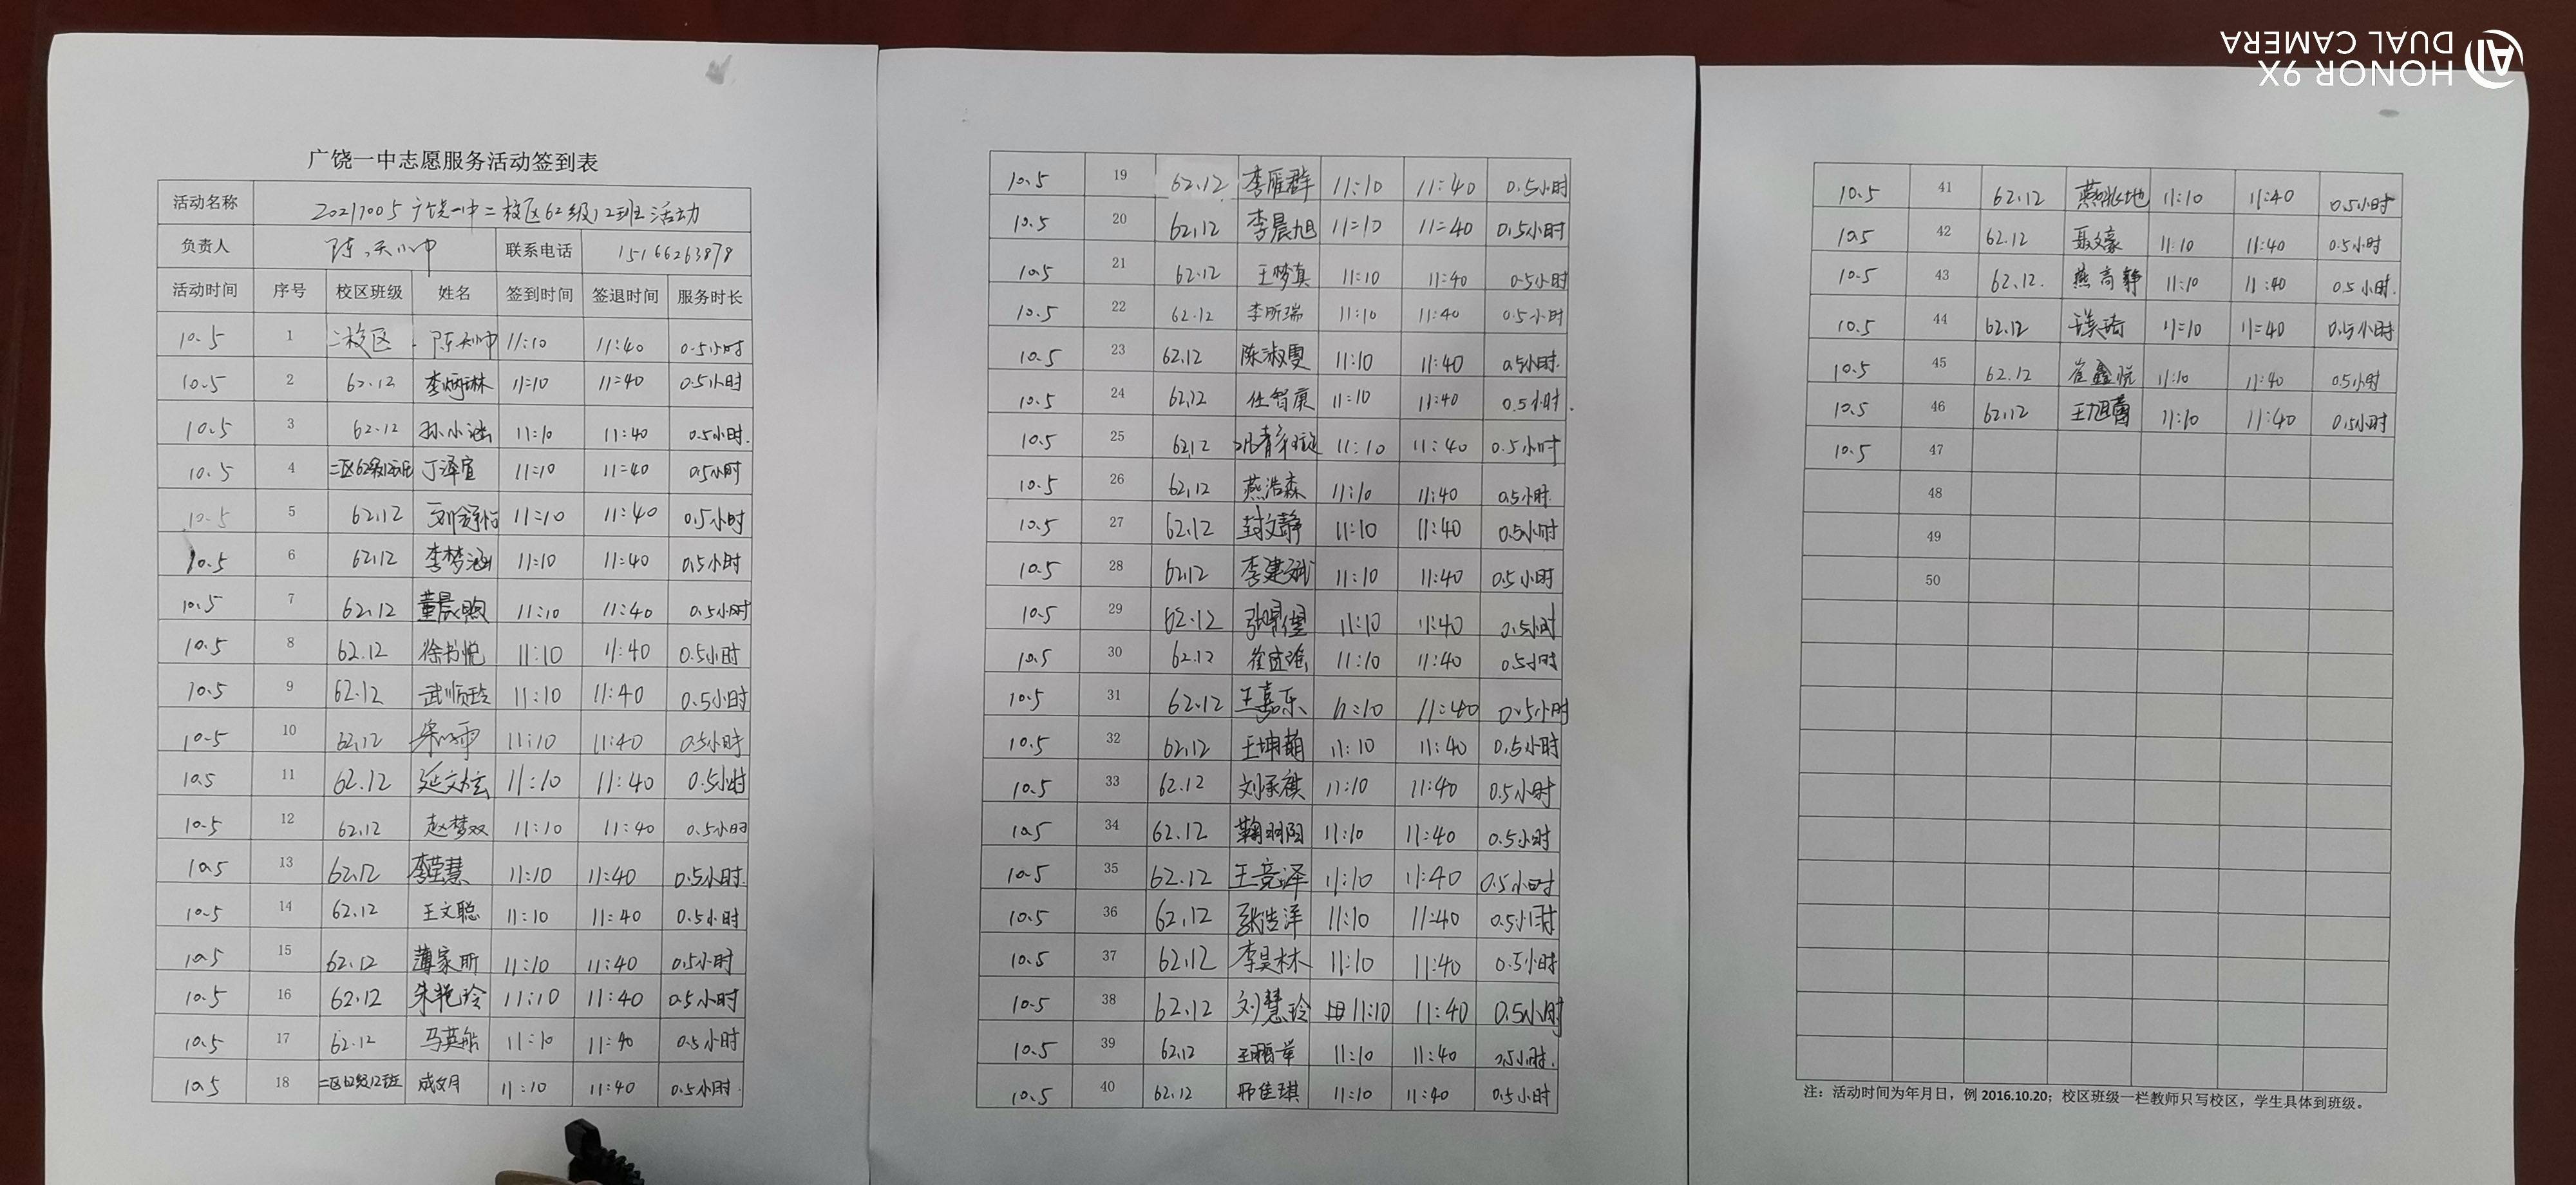 HONOR 9X
DUAL CAMERA
广饶一中志愿服务活动签到表
活动名称 20211005广饶一中二校区62级12班活动
负责人 陈天帅 联系电话 15166263878
活动时间 序号 校区班级 姓名 签到时间 签退时间 服务时长
10.5 1 二校区 陈天帅 11:10 11:40 0.5小时
10.5 2 62.12 李炳琳 11:10 11:40 0.5小时
10.5 3 62.12 孙小涵 11:10 11:40 0.5小时.
10.5 4 二区62级12班 丁泽宣 11:10 11:40 0.5小时
10.5 5 62.12 11:10 11:40 0.5小时
10.5 6 62.12 李梦涵 11:10 11:40 0.5小时
10.5 7 62.12 董晨煦 11:10 11:40 0.5小时
10.5 8 62.12 徐书悦 11:10 11:40 0.5小时
10.5 9 62.12 武顺玲 11:10 11:40 0.5小时
10.5 10 62.12 11:10 11:40 0.5小时
10.5 11 62.12 延文炫 11:10 11:40 0.5小时
10.5 12 62.12 赵梦双 11:10 11:40 0.5小时
10.5 13 62.12 李莹慧 11:10 11:40 0.5小时.
10.5 14 62.12 王文聪 11:10 11:40 0.5小时
10.5 15 62.12 薄家昕 11:10 11:40 0.5小时
10.5 16 62.12 朱艳玲 11:10 11:40 0.5小时
10.5 17 62.12 马英船 11:10 11:40 0.5小时
10.5 18 二区62级12班 成文月 11:10 11:40 0.5小时.
10.5 19 62.12 李雁群 11:10 11:40 0.5小时
10.5 20 62.12 李晨旭 11:10 11:40 0.5小时
10.5 21 62.12 王梦真 11:10 11:40 0.5小时
10.5 22 62.12 李昕瑞 11:10 11:40 0.5小时
10.5 23 62.12 陈淑雯 11:10 11:40 0.5小时.
10.5 24 62.12 任智康 11:10 11:40 0.5小时.
10.5 25 62.12 11:10 11:40 0.5小时
10.5 26 62.12 燕浩森 11:10 11:40 0.5小时.
10.5 27 62.12 封文静 11:10 11:40 0.5小时
10.5 28 62.12 李建斌 11:10 11:40 0.5小时
10.5 29 62.12 11:10 11:40 0.5小时
10.5 30 62.12 11:10 11:40 0.5小时
10.5 31 62.12 王嘉乐 11:10 11:40 0.5小时
10.5 32 62.12 王坤萌 11:10 11:40 0.5小时
10.5 33 62.12 刘承祺 11:10 11:40 0.5小时
10.5 34 62.12 鞠羽阳 11:10 11:40 0.5小时
10.5 35 62.12 王竞泽 11:10 11:40 0.5小时
10.5 36 62.12 张浩洋 11:10 11:40 0.5小时
10.5 37 62.12 李昊林 11:10 11:40 0.5小时
10.5 38 62.12 刘慧玲 11:10 11:40 0.5小时
10.5 39 62.12 11:10 11:40 0.5小时.
10.5 40 62.12 邢佳琪 11:10 11:40 0.5小时
10.5 41 62.12 11:10 11:40 0.5小时
10.5 42 62.12 聂文豪 11:10 11:40 0.5小时
10.5 43 62.12. 燕高静 11:10 11:40 0.5小时.
10.5 44 62.12 11:10 11:40 0.5小时
10.5 45 62.12 崔鑫悦 11:10 11:40 0.5小时
10.5 46 62.12 王旭蕾 11:10 11:40 0.5小时
10.5 47
48
49
50
注：活动时间为年月日，例 2016.10.20；校区班级一栏教师只写校区，学生具体到班级。